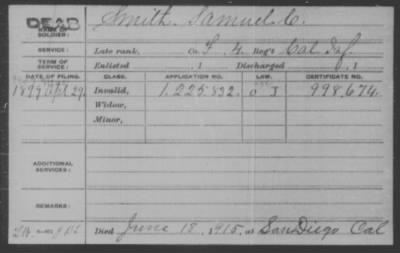 DEAD
NAME OF SOLDIER: Smith, Samuel C.
SERVICE: Late rank, Co. F, 4, Reg't Cal. Inf.
TERM OF SERVICE: Enlisted , 1 Discharged , 1
DATE OF FILING. CLASS. APPLICATION NO. LAW. CERTIFICATE NO.
1899 29. Invalid, 1.225.832. 998,674.
Widow,
Minor,
ADDITIONAL SERVICES:
REMARKS:
Died June 18, 1915, at San Diego Cal